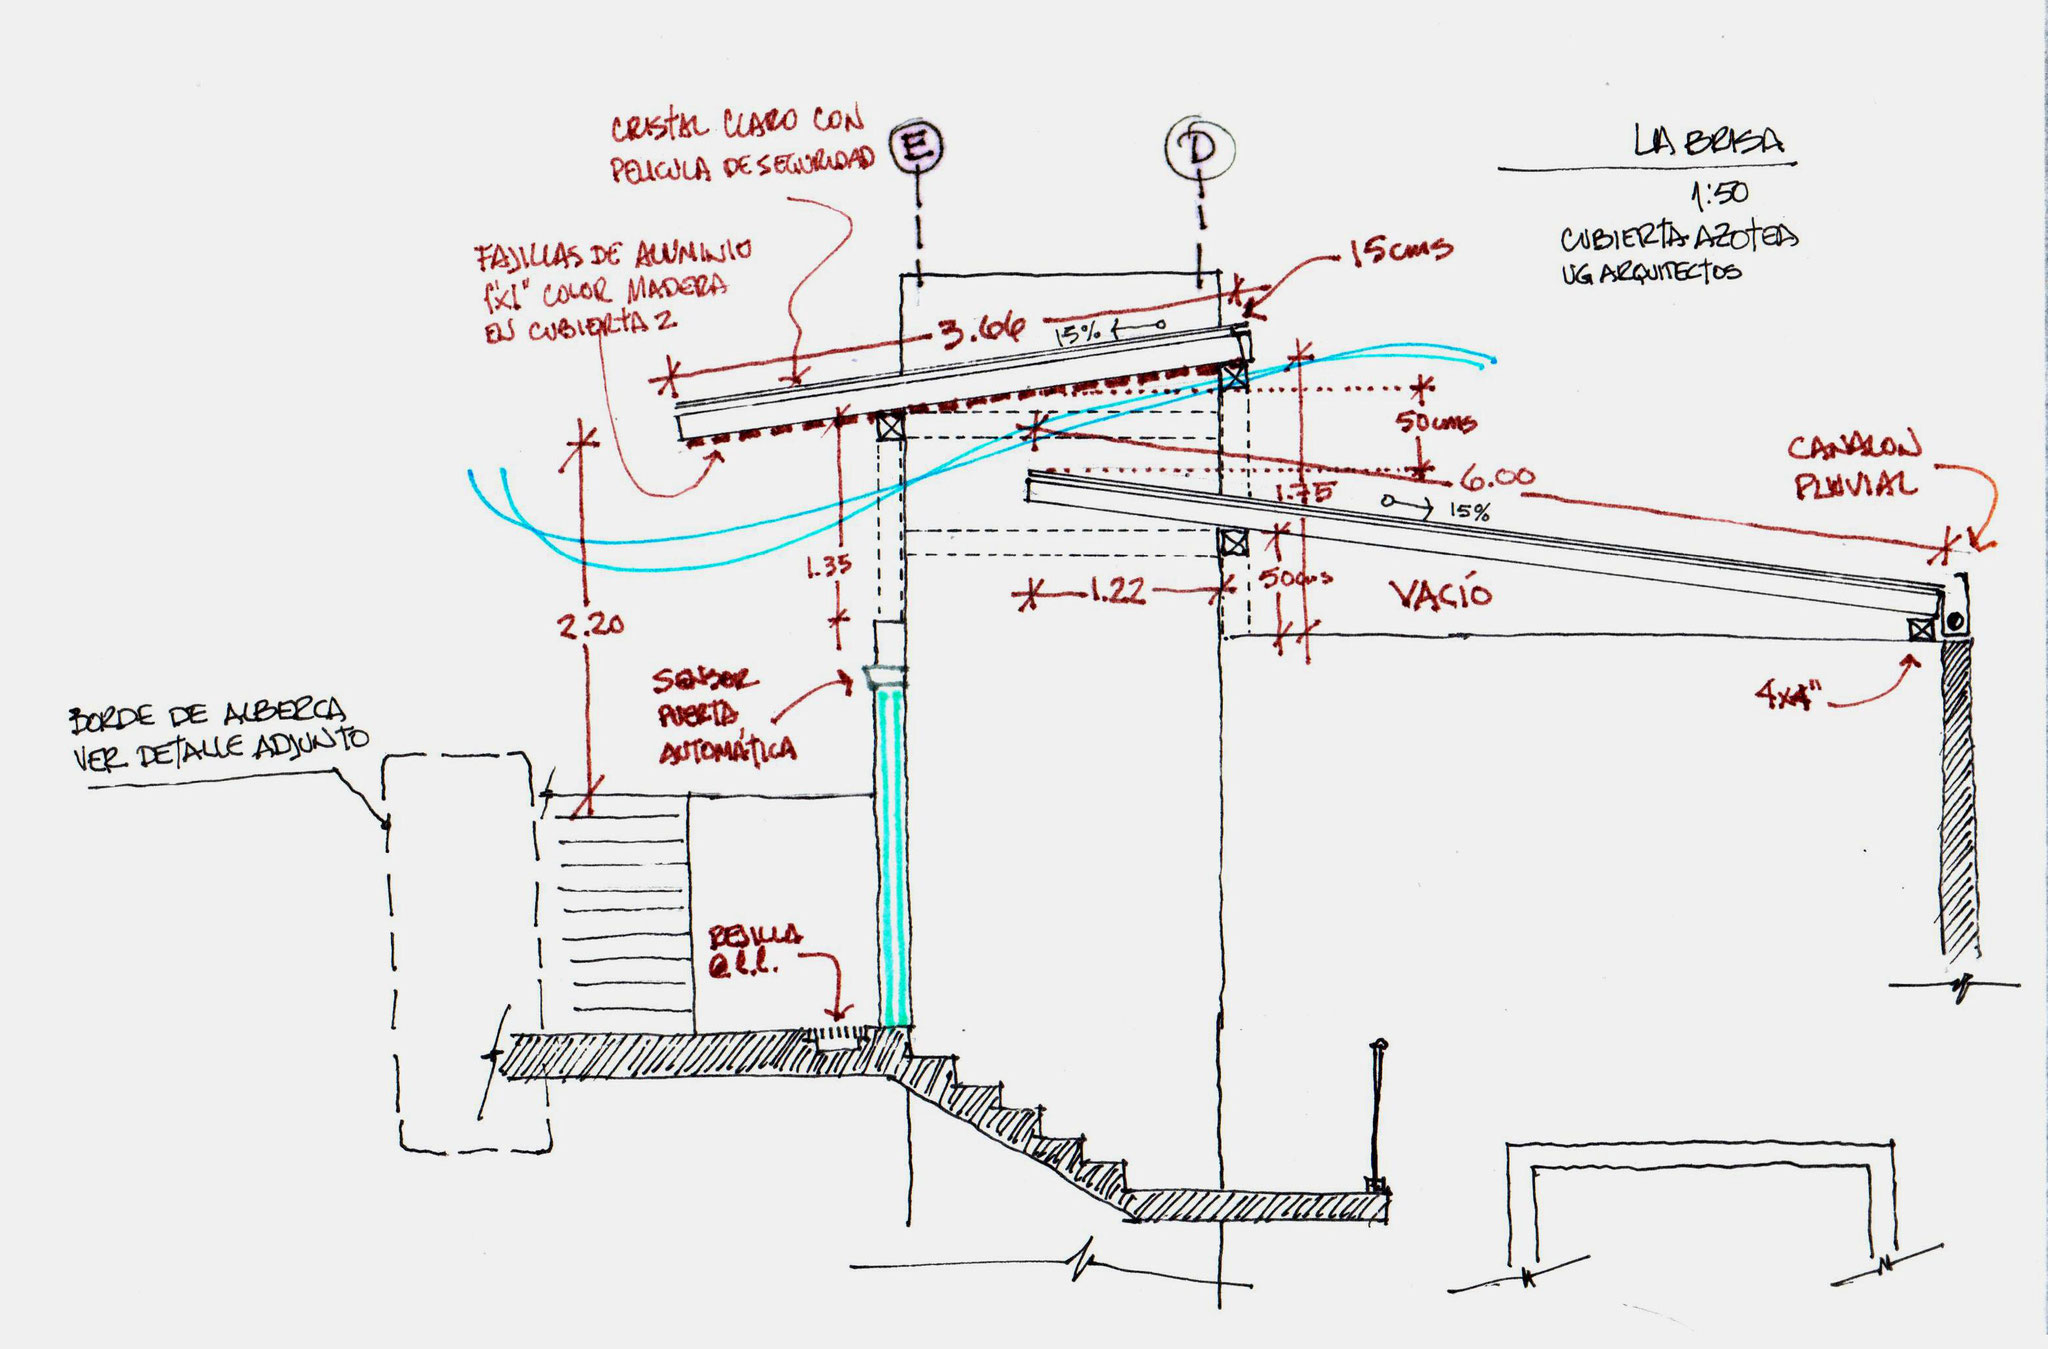 CRISTAL CLARO CON
PELICULA DE SEGURIDAD
E
D
LA BRISA
1:50
CUBIERTA AZOTEA
UG ARQUITECTOS
FAJILLAS DE ALUMINIO
1"x1" COLOR MADERA
EN CUBIERTA 2
15cms
3.66
15%
50cms
6.00
1.75
15%
CANALON
PLUVIAL
1.35
2.20
1.22
50cms
VACÍO
4x4"
SENSOR
PUERTA
AUTOMÁTICA
BORDE DE ALBERCA
VER DETALLE ADJUNTO
REJILLA
@.l.l.